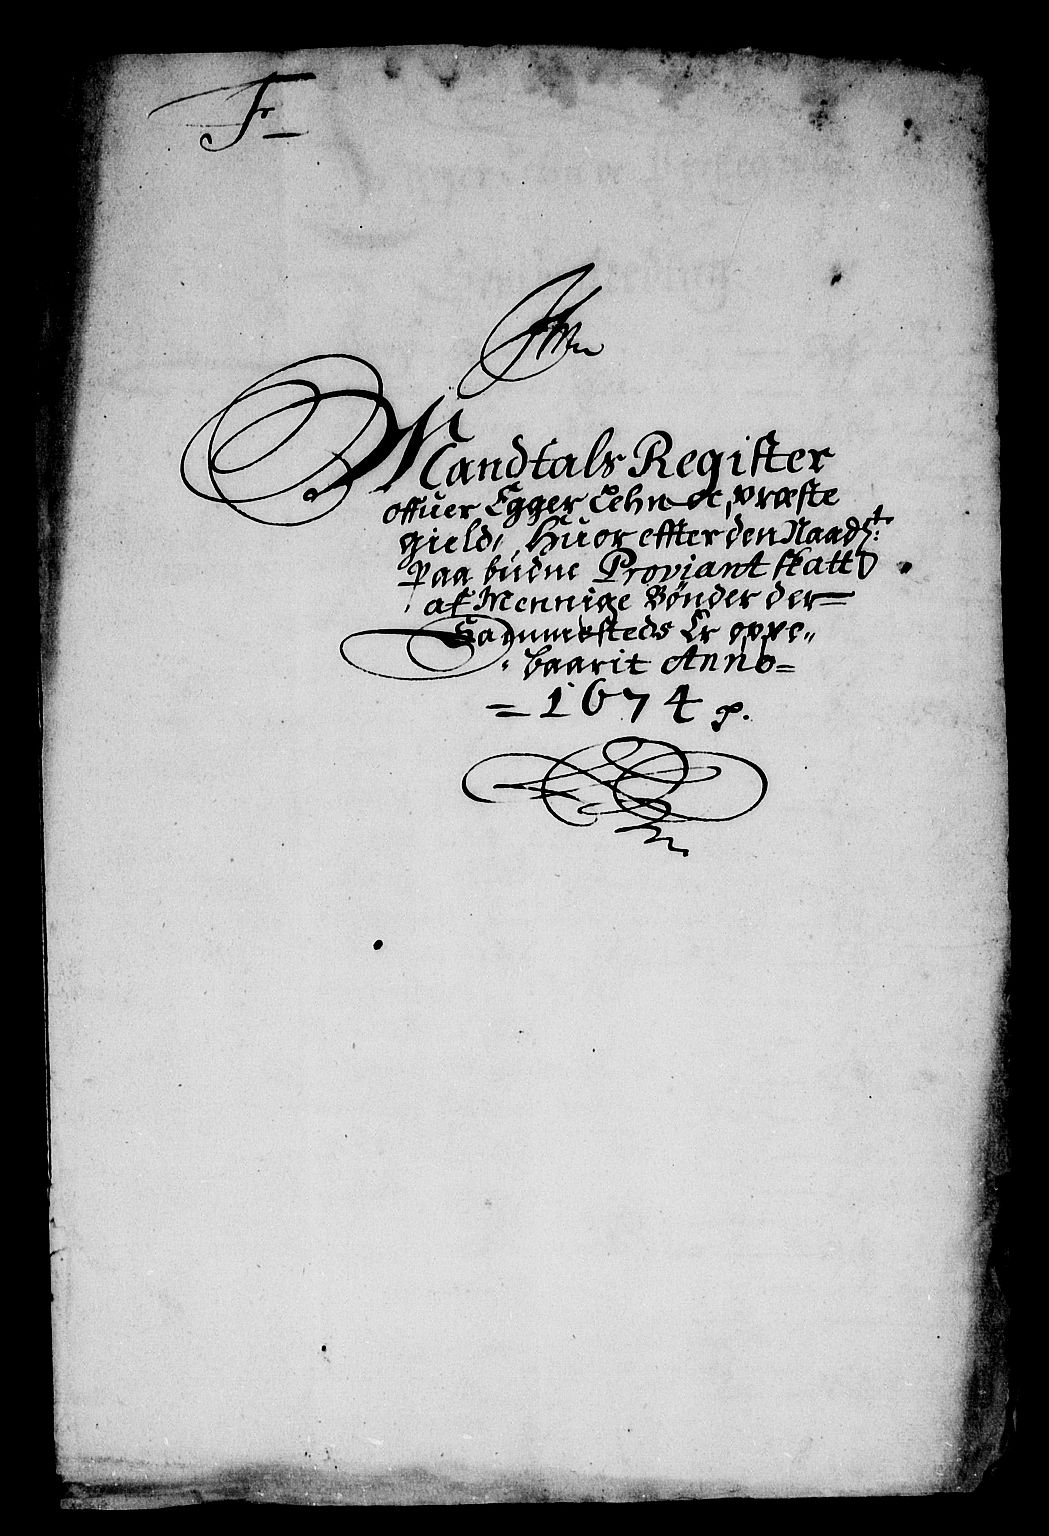 F
Mandtals Register
offuer Egger Lehn oc præste
gield, Huor effter den Naadst:
Paa budne Proviant skatt
af Mennige Bønder der
Sammesteds Er oppe„
baarit Anno
1674